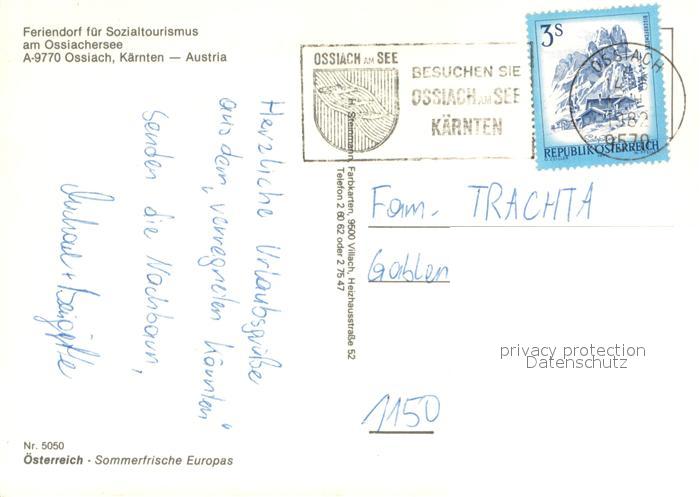 Feriendorf für Sozialtourismus
am Ossiachersee
A-9770 Ossiach, Kärnten — Austria
OSSIACH AM SEE
BESUCHEN SIE
OSSIACH AM SEE
KÄRNTEN
3 S
REPUBLIK ÖSTERREICH
OSSIACH
9570
Herzliche Urlaubsgrüße
aus dem „verregneten Kärnten“
senden die Nachbarn,
Michael + Brigitte
H. Steinmann, Farbkarten, 9500 Villach, Heizhausstraße 52
Telefon 2 60 62 oder 2 75 47
Fam. TRACHTA
Gablen
1150
privacy protection
Datenschutz
Nr. 5050
Österreich - Sommerfrische Europas